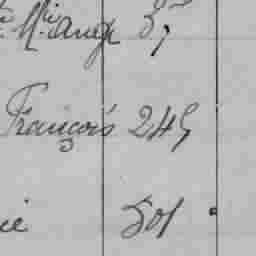 Mie ange 37
François 245
ie 501